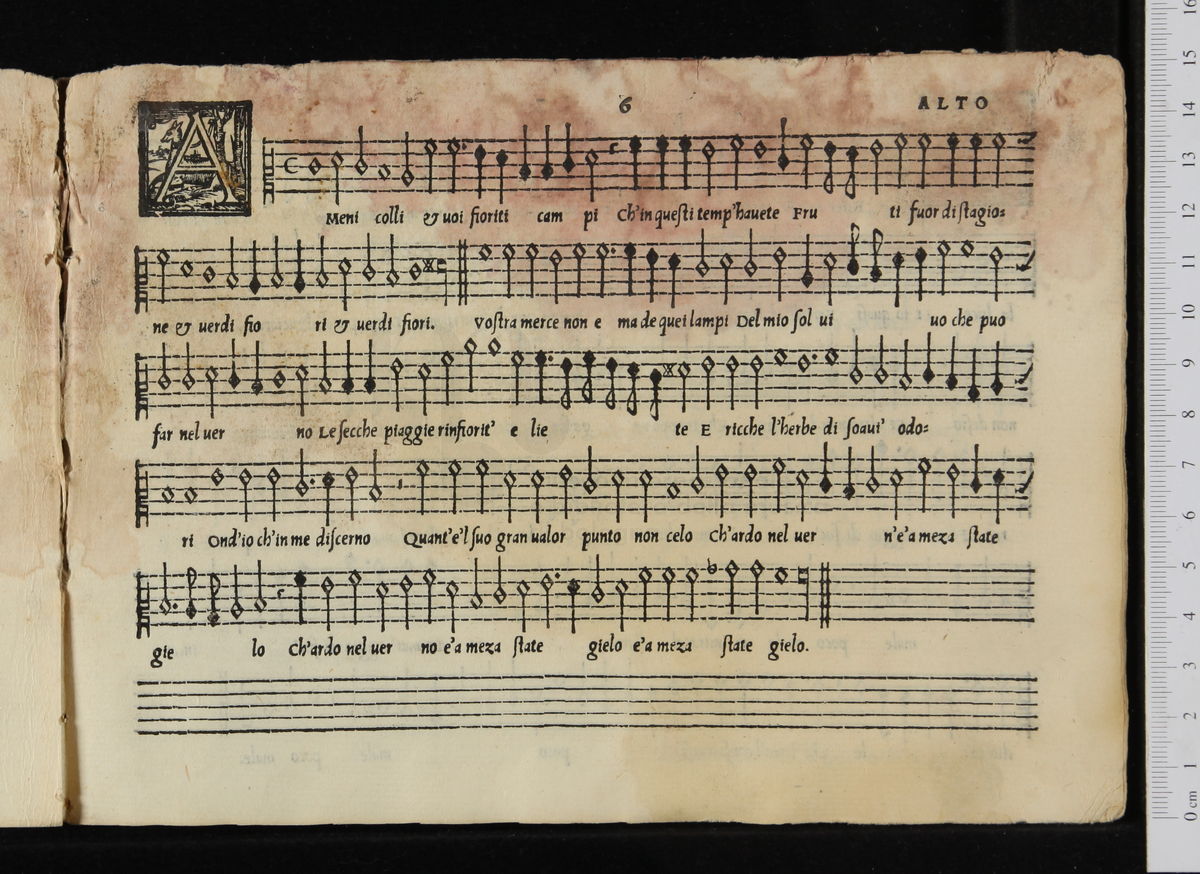 6 ALTO
AMeni colli & uoi fioriti cam pi Ch'in questi temp'hauete Fru ti fuor di stagio=
ne & uerdi fio ri & uerdi fiori. Vostra merce non e ma de quei lampi Del mio sol ui uo che puo
far nel uer no Le secche piaggie rinfiorit' e lie te E ricche l'herbe di soaui' odo=
ri Ond'io ch'in me discerno Quant'e'l suo gran ualor punto non celo Ch'ardo nel uer n'e'a meza state
gie lo Ch'ardo nel uer no e'a meza state gielo e'a meza state gielo.
0 cm 1 2 3 4 5 6 7 8 9 10 11 12 13 14 15 16